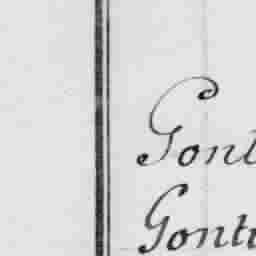 Gont
Gontu